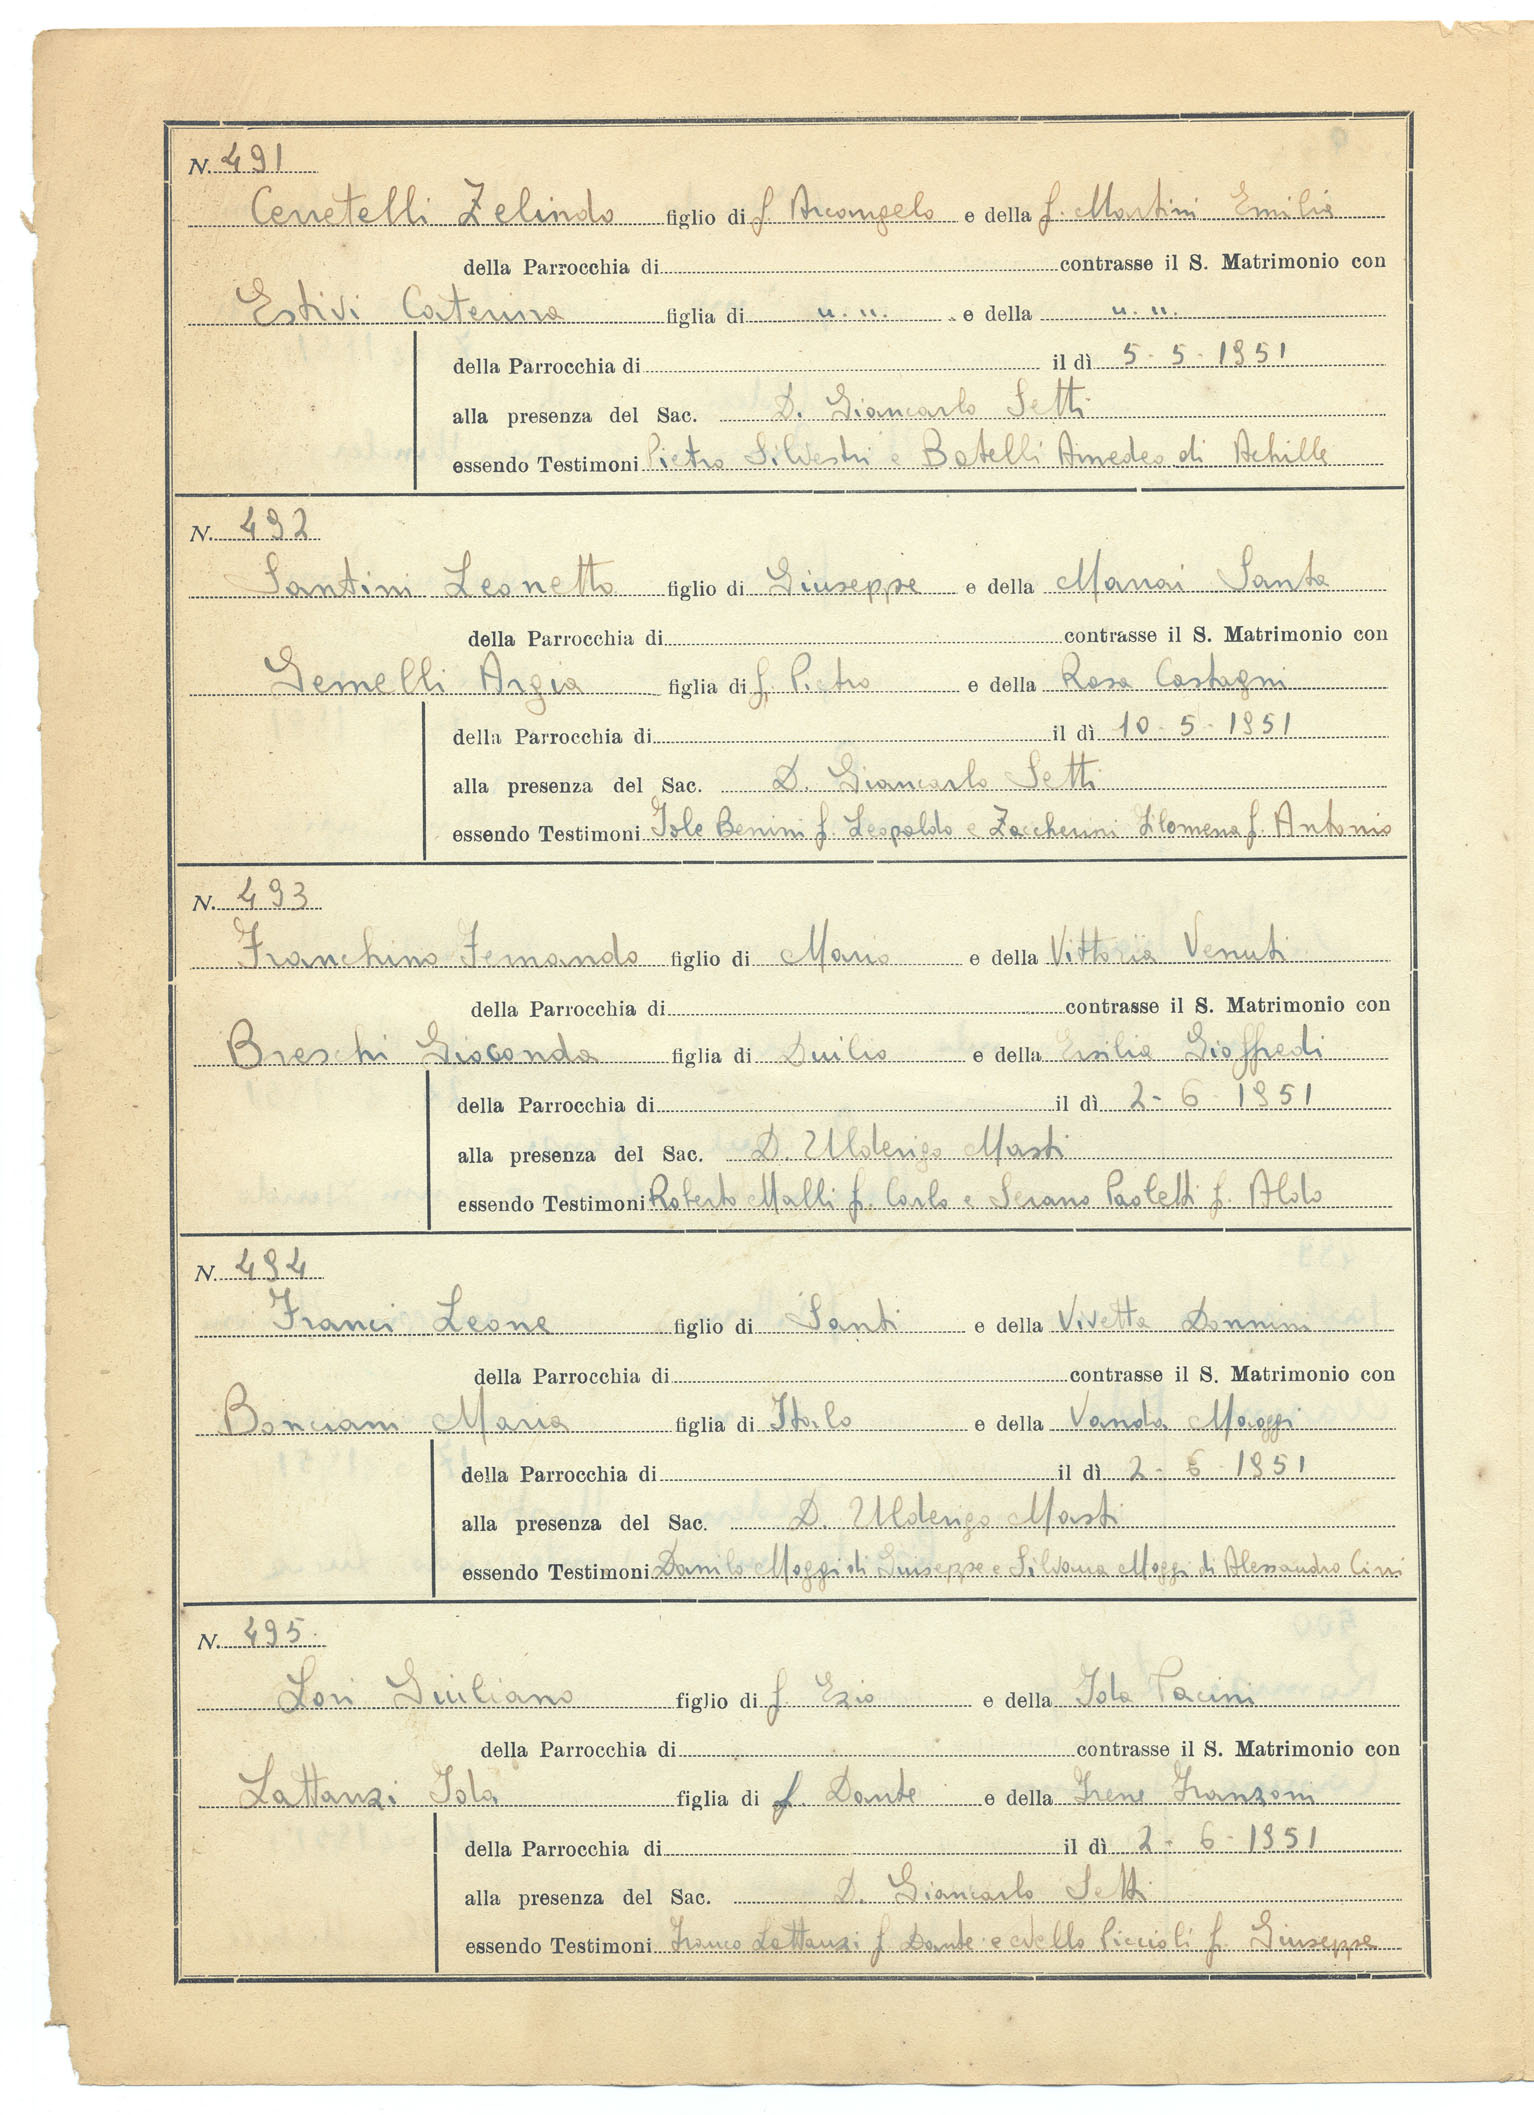 N. 491
Cerretelli Zelindo figlio di f. Arcangelo e della f. Martini Emilia
della Parrocchia di contrasse il S. Matrimonio con
Estivi Caterina figlia di u. u. e della u. u.
della Parrocchia di il dì 5-5-1951
alla presenza del Sac. D. Giancarlo Setti
essendo Testimoni Pietro Silvestri e Batelli Amedeo di Achille
N. 492
Santini Leonetto figlio di Giuseppe e della Marrai Santa
della Parrocchia di contrasse il S. Matrimonio con
Gemelli Argia figlia di f. Pietro e della Rosa Castagni
della Parrocchia di il dì 10-5-1951
alla presenza del Sac. D. Giancarlo Setti
essendo Testimoni Isle Benini f. Leopoldo e Zaccherini Filomena f. Antonio
N. 493
Franchino Fernando figlio di Mario e della Vittoria Venuti
della Parrocchia di contrasse il S. Matrimonio con
Breschi Gioconda figlia di Duilio e della Ersilia Gioffredi
della Parrocchia di il dì 2-6-1951
alla presenza del Sac. D. Ulderigo Masti
essendo Testimoni Roberto Malli f. Carlo e Serano Paoletti f. Aldo
N. 494
Franci Leone figlio di Santi e della Vivetta Donnini
della Parrocchia di contrasse il S. Matrimonio con
Bonciani Maria figlia di Italo e della Vanda Maggi
della Parrocchia di il dì 2-6-1951
alla presenza del Sac. D. Ulderigo Masti
essendo Testimoni Danilo Moggi di Giuseppe e Silvana Moggi di Alessandro Cirri
N. 495
Lori Giuliano figlio di f. Ezio e della Ida Pacini
della Parrocchia di contrasse il S. Matrimonio con
Lattanzi Iola figlia di f. Dante e della Irene Franzoni
della Parrocchia di il dì 2-6-1951
alla presenza del Sac. D. Giancarlo Setti
essendo Testimoni Franco Lattanzi f Dante e Nello Piccioli f. Giuseppe